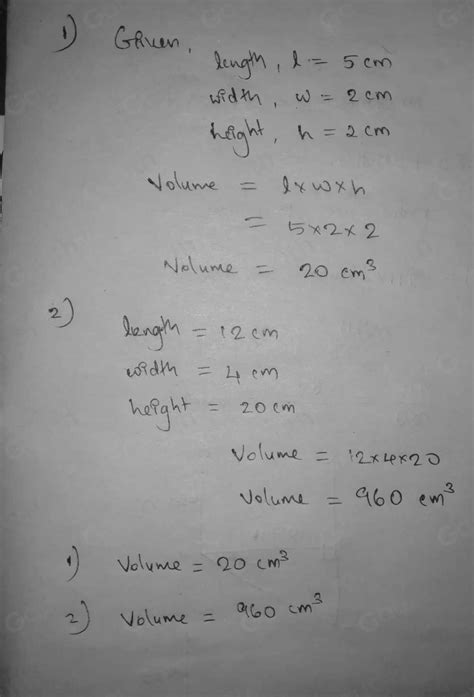 1) Given,
length, l = 5 cm
width, w = 2 cm
height, h = 2 cm
Volume = l×w×h
= 5×2×2
Volume = 20 cm³
2)
length = 12 cm
width = 4 cm
height = 20 cm
Volume = 12×4×20
Volume = 960 cm³
1) Volume = 20 cm³
2) Volume = 960 cm³